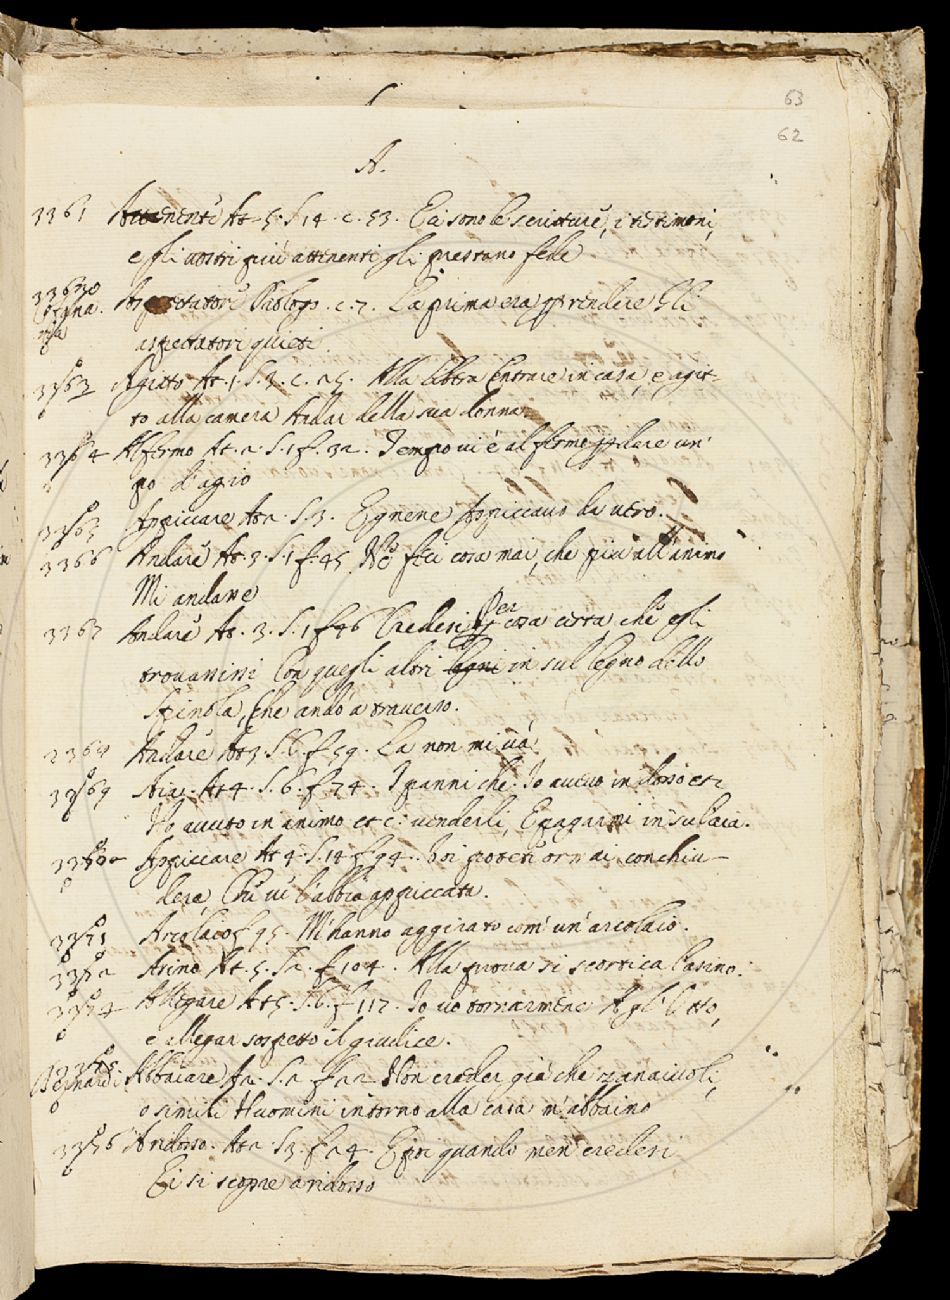 63
62
A.
3361 Attenente At 5. S. 14. c. 53. Ea sono le scritture, i testimoni,
e gli vostri più attinenti gli prestano fede
Prologo. c. 7. La prima era rendere gli
aspettatori quieti
Agiato At. 1. S. 3. c. 25. Alla libera entrare in casa, e agia-
to alla camera Andar della sua donna
Al fermo At. 2. S. 1 f. 32. Tempo vi è al fermo un
po d'agio
Appiccare At 2. S. 3. appiccavo di vero.
3366 Andare At. 3. S. 1 f. 45 No feci cosa mai, che più all'animo
Mi andasse
3367 Andare At. 3. S. 1 f 46 Credersi Per cosa certa che egli
trovassivi Con quegli altri legni in sul legno dello
Spinola, che andò a traverso.
Andare At 3 S. 6. f 59. La non mi và.
Aia. At 4. S. 6. f 74. I panni che Io avevo in dosso etc
Ho avuto in animo etc: venderli, E pagarmi in sul'aia.
Appiccare At 4. S. 14 f 94. Voi potete ormai conchiu-
dere, Che vi l'abbia appiccata.
3371 Arcolaio f 95. M'hanno aggirato com' un' arcolaio.
Asino At. 5. S 2. f 104. Alla prova si scortica l'asino.
Allegare At 5. S. 6. f 112. Io vo tornarmene Agl' letto,
e allegar sospetto il giudice.
Abbacare A 2. S. 2 f 22 Non creder già che zanaiuoli,
o simili Huomini intorno alla casa m'abbaino
Aridosso. At 2. S 3. f 24. E poi quando men credersi
Ei si scopre aridosso